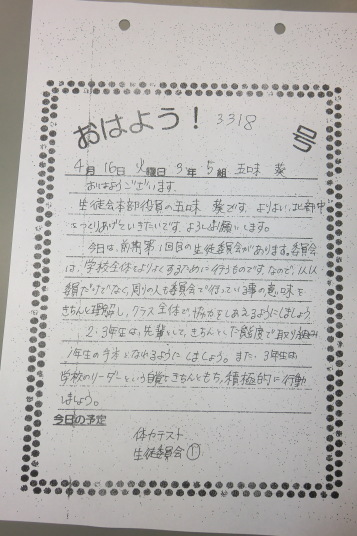 おはよう! 3318 号
4月16日火曜日3年5組 五味 葵
おはようございます。
生徒会本部役員の五味 葵です。よりよい北番中
をつくりあげていきたいです。よろしくお願いします。
今日は、前期第1回目の生徒委員会があります。委員会
は、学校全体をよりよくするために行うものです。なので、
委員だけでなく、周りの人も委員会で行っている事の意味を
きちんと理解し、クラス全体で、協力をしあえるようにしましょう。
2・3年生は、先輩として、きちんとした態度で取り組み
1年生の手本となれるようにしましょう。また、3年生は
学校のリーダーという自覚をきちんともち、積極的に行動
しましょう。
今日の予定
体力テスト
生徒委員会①